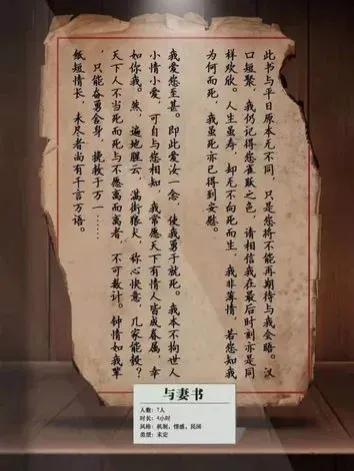 此书与平日原本无不同，只是您将不能再期待与我会晤。汉
口短聚，我仍记得您雀跃之色，请相信我在最后时刻亦是同
祥欢欣。人生虽寿，却无不向死而生，我非薄情，若您知我
为何而死，我虽死亦已得到安慰。
我爱您至甚。即此爱汝一念，使我勇于就死。我本不拘世人
小情小爱，可自与您相知，我常愿天下有情人皆成眷属，幸
如你我。然，遍地腥云，满街狼犬，你心快意，几家能彀？
天下人不当死而死与不愿离而离者，不可数计。钟情如我辈
，只能奋勇舍身，挽救于万一……
纸短情长，未尽者尚有千言万语。
与妻书
人数：7人
时长：4小时
风格：机制，情感，民国
类型：未定